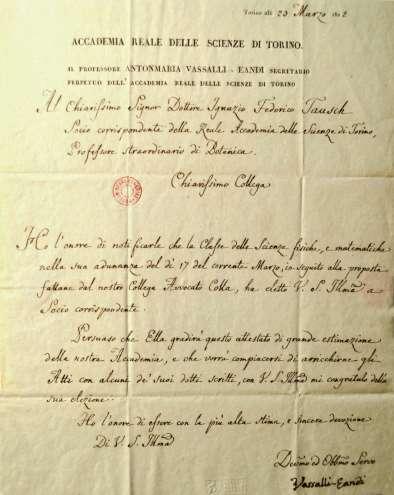 Torino alli 23 Marzo 182
ACCADEMIA REALE DELLE SCIENZE DI TORINO.
IL PROFESSORE ANTONMARIA VASSALLI-EANDI SEGRETARIO
PERPETUO DELL'ACCADEMIA REALE DELLE SCIENZE DI TORINO
Al Chiarissimo Signor Dottore Ignazio Federico Tausch
Socio corrispondente della Reale Accademia delle Scienze di Torino,
Professore straordinario di Botanica.
Chiarissimo Collega
Ho l'onore di notificarle che la Classe delle Scienze fisiche, e matematiche
nella sua adunanza del dì 17 del corrente Marzo, in seguito alla proposta
fattane dal nostro Collega Avvocato Colla, ha eletto V. S. Illma a
Socio corrispondente.
Persuaso che Ella gradirà questo attestato di grande estimazione
della nostra Accademia, e che vorrà compiacersi di arricchirne gli
Atti con alcune de' suoi dotti scritti, con V. S. Illma mi congratulo della
sua elezione.
Ho l'onore di essere con la più alta stima, e sincera devozione
Di V. S. Illma
Devmo ed Obbmo Servo
Vassalli-Eandi